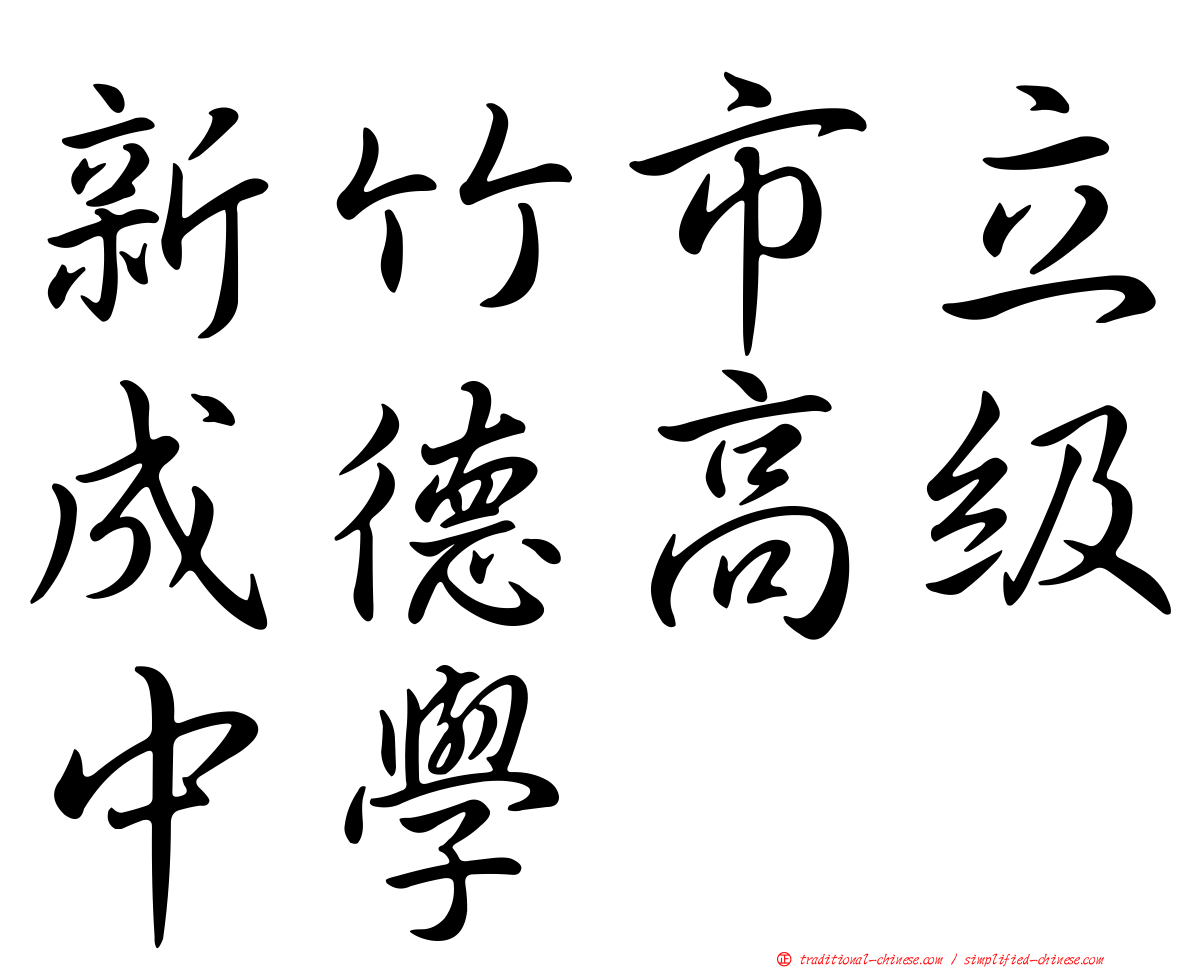 新竹市立
成德高級
中學
正 traditional-chinese.com / simplified-chinese.com